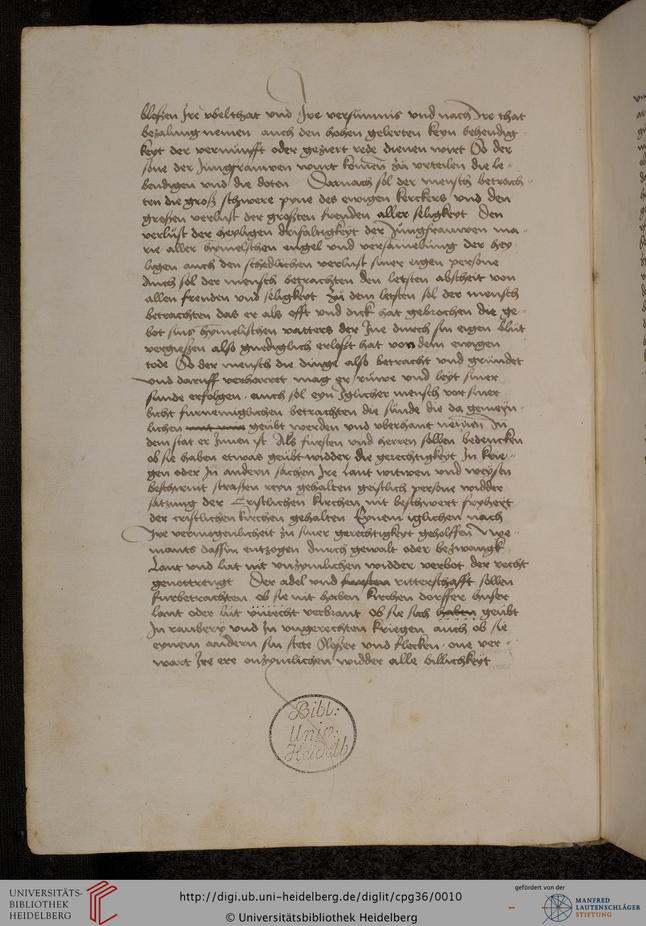 bloßen Ire vbelthat vnd Ire versümnis vnd nach Ire that
bezalung nemen auch den hohen gelerten keyn behendig
keyt der vernunfft oder geziert rede dienen wirt So der
sone der Jungfrauwen wirt komen zu vrteilen die le-
bendigen vnd die doten Darnach sol der mensch betrach-
ten die groß schwere pyne des ewigen kerckers vnd den
grosten verlust der grosten freuden aller seligkeyt Den
verlust der heyligen drifaltigkeyt der Jungfrauwen ma-
rie aller hymelschen engel vnd versamelung der hey-
ligen auch den schedlichen verlust siner eigen persone
Auch sol der mensch betrachten den letsten abscheit von
allen freuden vnd seligkeyt Zu dem letsten sol der mensch
betrachten das er als offt vnd dick hat gebrochen die ge-
bot sins hymelischen vatters der Ine durch sin eigen blut
vergießen also gnediglich erlost hat von dem ewigen
tode So der mensch die dinge also betracht vnd gründet
vnd daruff verharret mag er ruwe vnd leyt siner
sunde erfolgen auch sol eyn Iglicher mensch vor siner
bicht furnemiglichen betrachten die sünde die da gemeyn-
lichen geübt werden vnd vberhant nemen In
dem stat er Innen ist Als fursten vnd herren sollen bedencken
ob sie haben etwas geübt widder die gerechtigkeyt In krie-
gen oder In andern sachen Ire lant witwen vnd weysen
beschirmt straßen reyn gehalten geistlich persone widder
satzung der Cristlichen kirchen nit beschwert fryheit
der cristlichen kirchen gehalten Eynem iglichen nach
Ire vermogenlicheit zu siner gerechtigkeyt geholffen Nye-
mants dassin entzogen durch gewalt oder bezwangk
Lant vnd lut mit vnzymlichen widder verbot der recht
genottrengt Der adel vnd ritterschafft sollen
furbetrachten ob sie nit haben kirchen dorffer huser
lant oder lut verbrant ob sie sich haben geübt
In rauberÿ vnd In vngerechten kriegen auch ob sie
eynem andern sin stete Sloßer vnd flecken one ver-
wart Ire ere onzymlichen widder alle billichkeyt
Bibl:
Univ:
Heidelb
UNIVERSITÄTS-
BIBLIOTHEK
HEIDELBERG
http://digi.ub.uni-heidelberg.de/diglit/cpg36/0010
© Universitätsbibliothek Heidelberg
gefördert von der
MANFRED
LAUTENSCHLÄGER
STIFTUNG